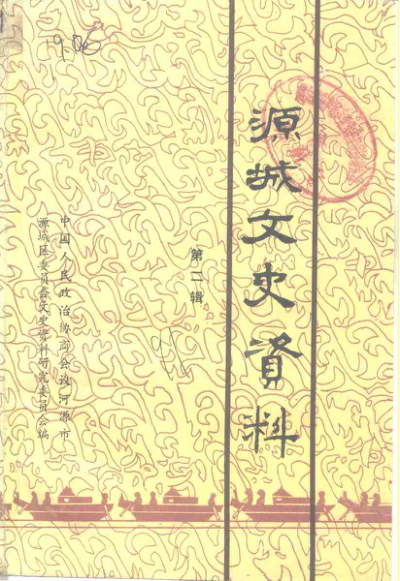 源城文史資料
第二辑
中国人民政治协商会议河源市
源城区委员会文史资料研究委员会编